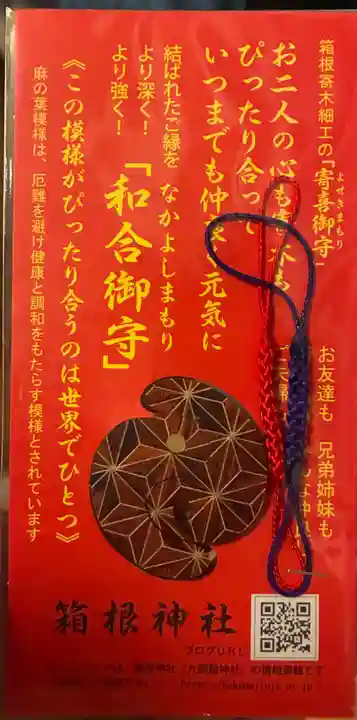 箱根寄木細工の「寄喜御守」
よせきまもり
お二人の心も
ぴったり合って
いつまでも仲 元気に
お友達も 兄弟姉妹も
結ばれたご縁を なかよしまもり
より深く!
より強く! 「和合御守」
《この模様がぴったり合うのは世界でひとつ》
麻の葉模様は、厄難を避け健康と調和をもたらす模様とされています
箱根神社
ブログURL